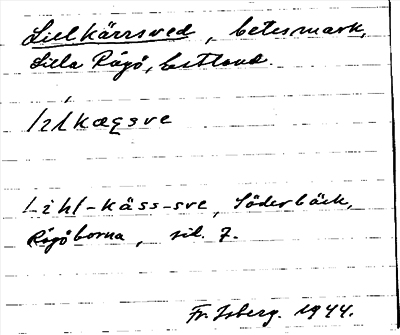 Lillkärrsved, betesmark,
Lilla Rågö, Estland
lilkæşsve
Lihl-käss-sve, Söderbäck,
Rågöborna, sid. 7.
Fr. Isberg. 1944.